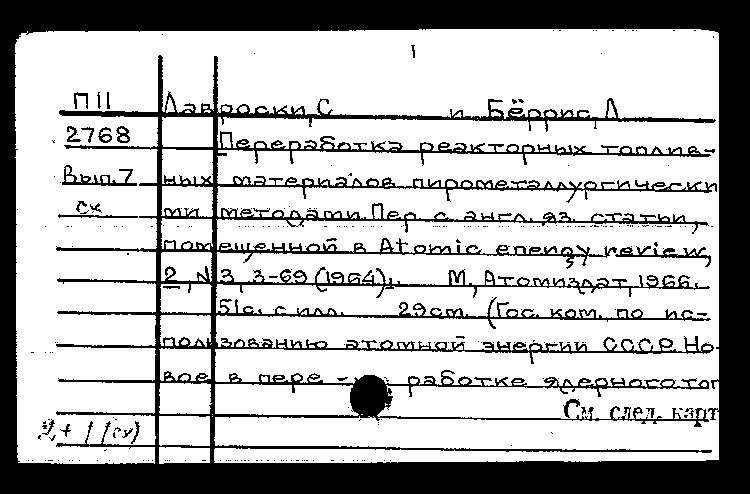 П11 Лавроски, С и Бёррис, Л
2768 Переработка реакторных топлив-
Вып.7 ных материалов пирометаллургически
ск ми методами. Пер. с англ. яз. статьи,
помещенной в Atomic energy review,
2, N 3, 3-69 (1964). М., Атомиздат, 1966.
51с. с илл. 29см. (Гос. ком. по ис-
пользованию атомной энергии СССР. Но-
вое в пере - работке ядерного топ
См. след. карт
2 + 1 (ск)